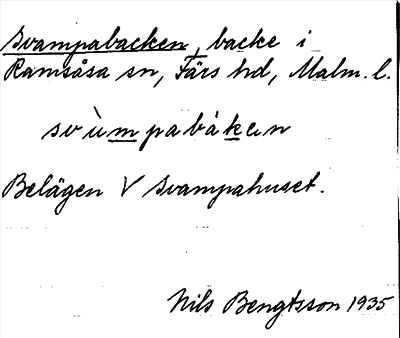 Svampabacken, backe i
Ramsåsa sn, Färs hd, Malm. l.
svùmpabákan
Belägen V Svampahuset.
Nils Bengtsson 1935